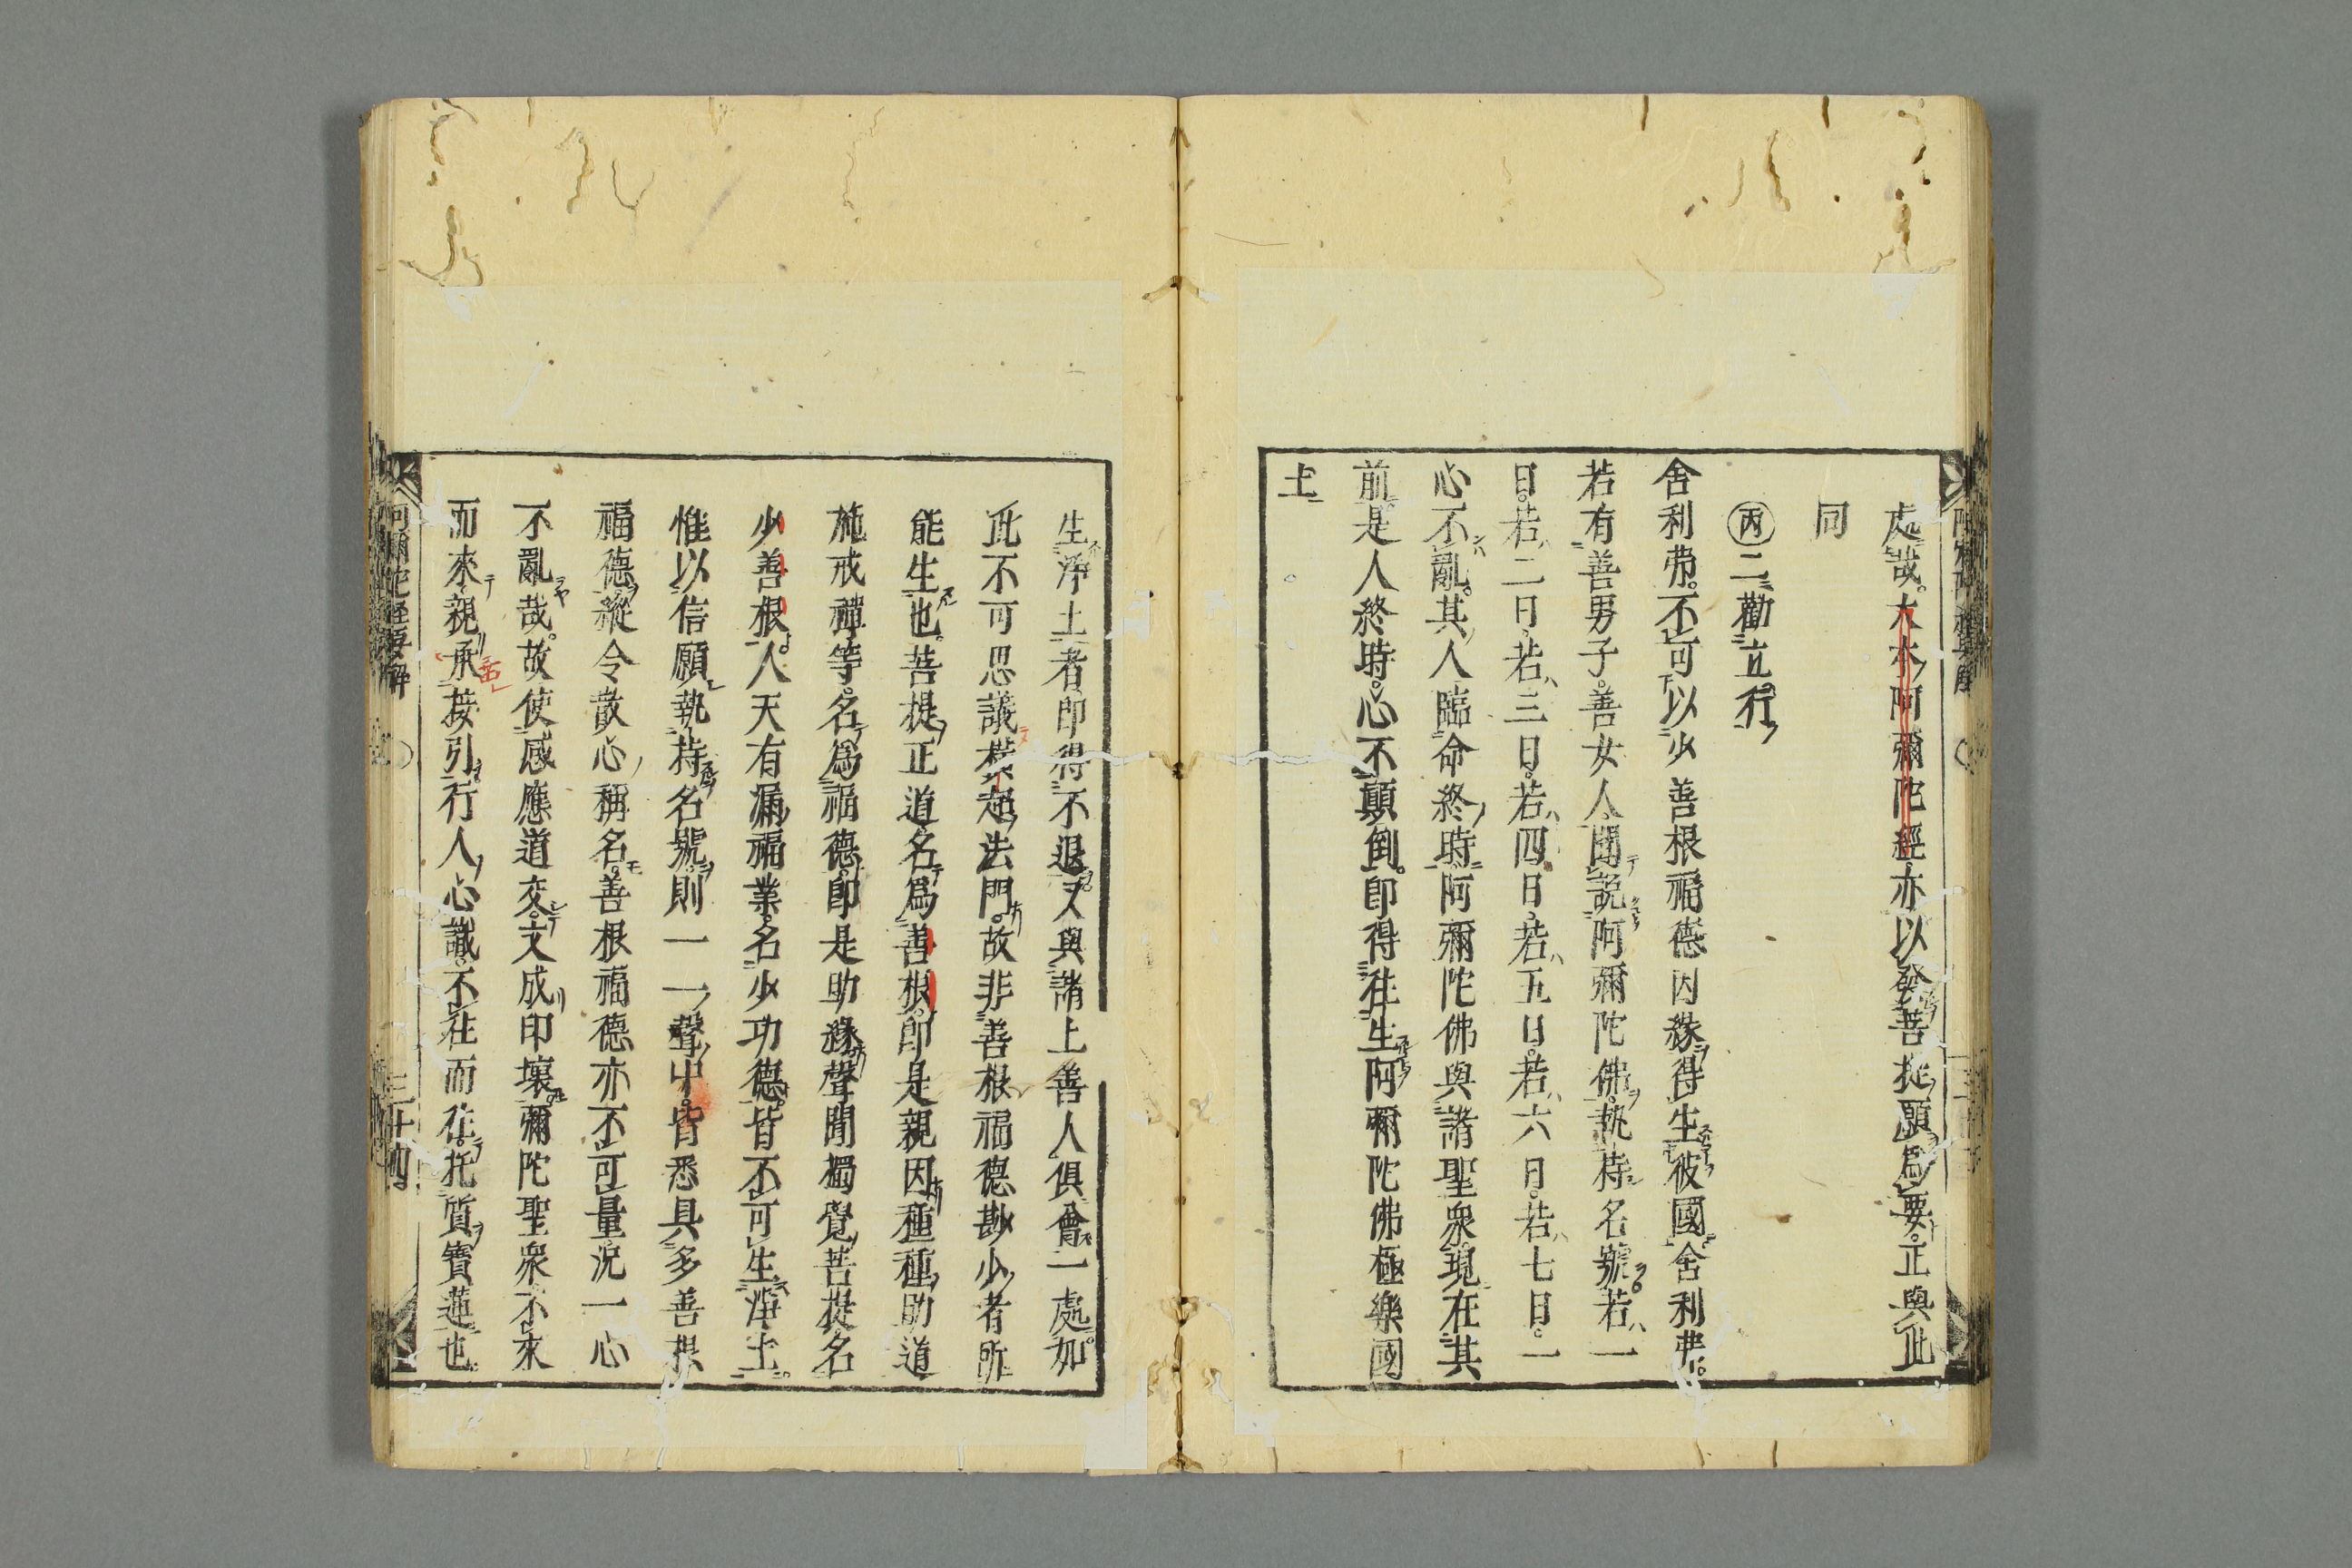 處哉。大本阿彌陀經。亦以發菩提願爲要。正與此
同
丙二勸立行
舍利弗。不可以少善根福德因緣得生彼國舍利弗。
若有善男子。善女人。聞說阿彌陀佛。執持名號。若一
日。若二日。若三日。若四日。若五日。若六日。若七日。一
心不亂。其人臨命終時。阿彌陀佛與諸聖衆現在其
前。是人終時。心不顛倒。即得往生阿彌陀佛極樂國
土。
生淨土者即得不退。又與諸上善人俱會一處。如
此不可思議橫超法門。故非善根福德尠少者所
能生也。菩提正道名爲善根。即是親因。種種助道
施戒禪等。名爲福德。即是助緣。聲聞獨覺菩提名
少善根。人天有漏福業。名少功德。皆不可生淨土。
惟以信願執持名號。則一一聲中。皆悉具多善根
福德。縱令散心稱名。善根福德亦不可量。況一心
不亂哉。故使感應道交。文成印壞。彌陀聖衆不來
而來。親承接引。行人心識。不往而往。托質寶蓮也。
阿彌陀經要解
二十四